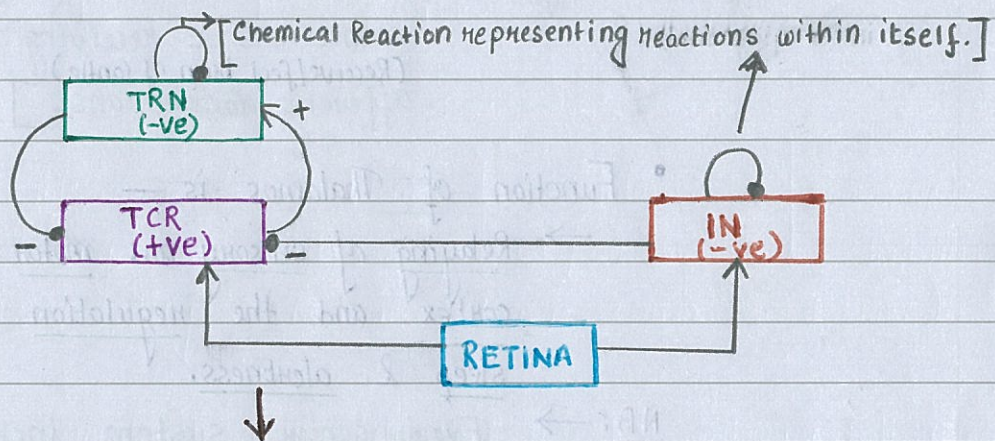 [Chemical Reaction representing reactions within itself.]
TRN
(-ve)
+
TCR
(+ve)
-
-
IN
(-ve)
RETINA